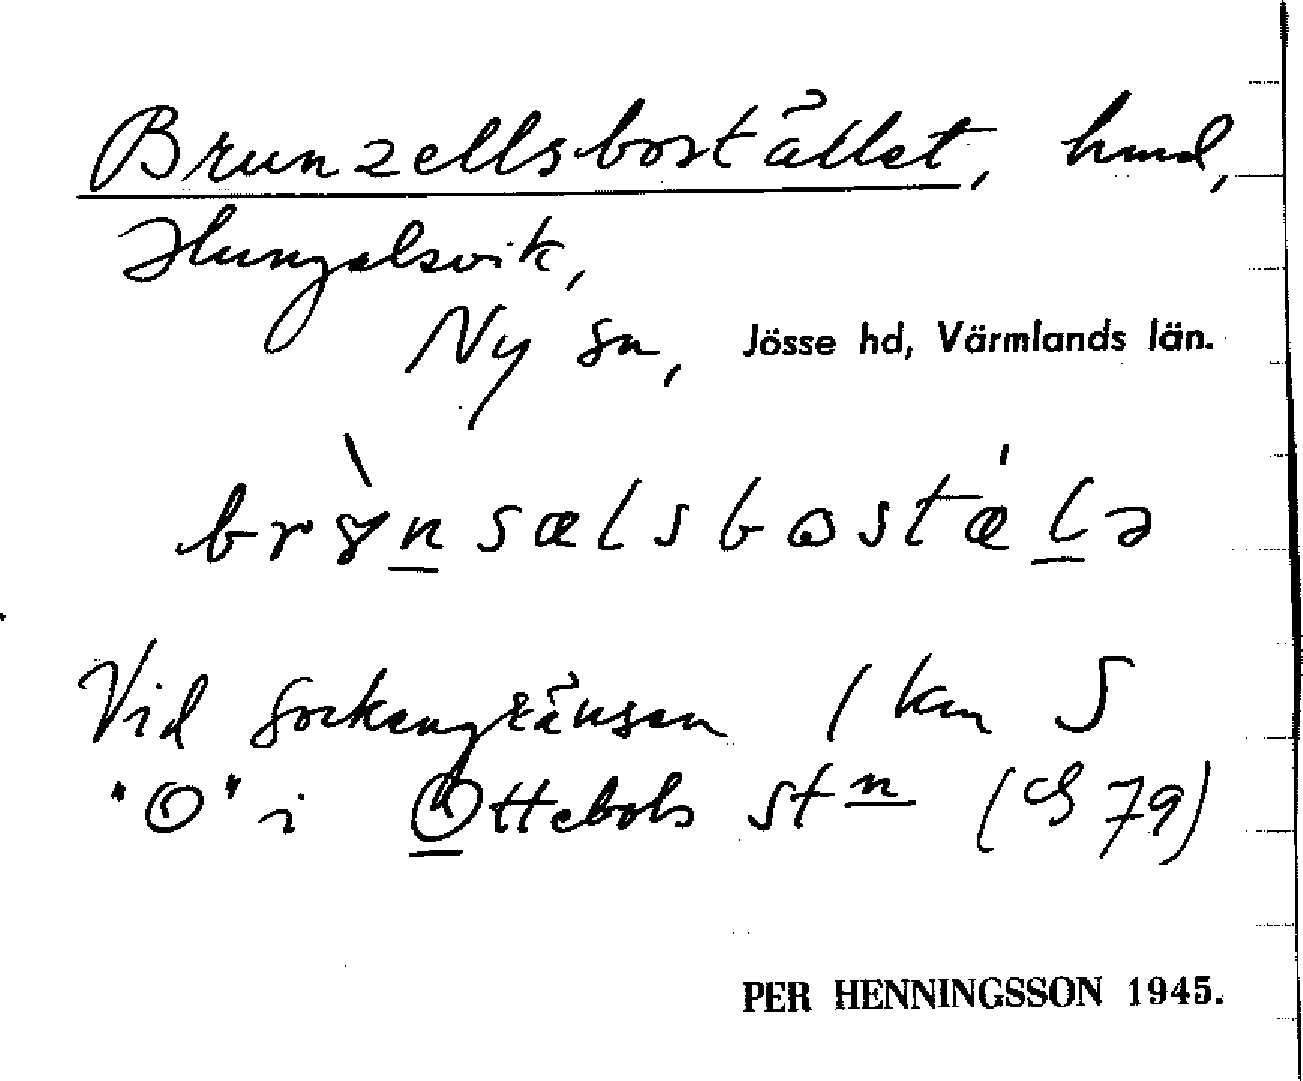 Brunzellsbostället, hmd,
Hungalsvik,
Ny sn, Jösse hd, Värmlands län.
Vid sockengränsen 1 km S
"O" i Ottebols stn (EB 79)
PER HENNINGSSON 1945.